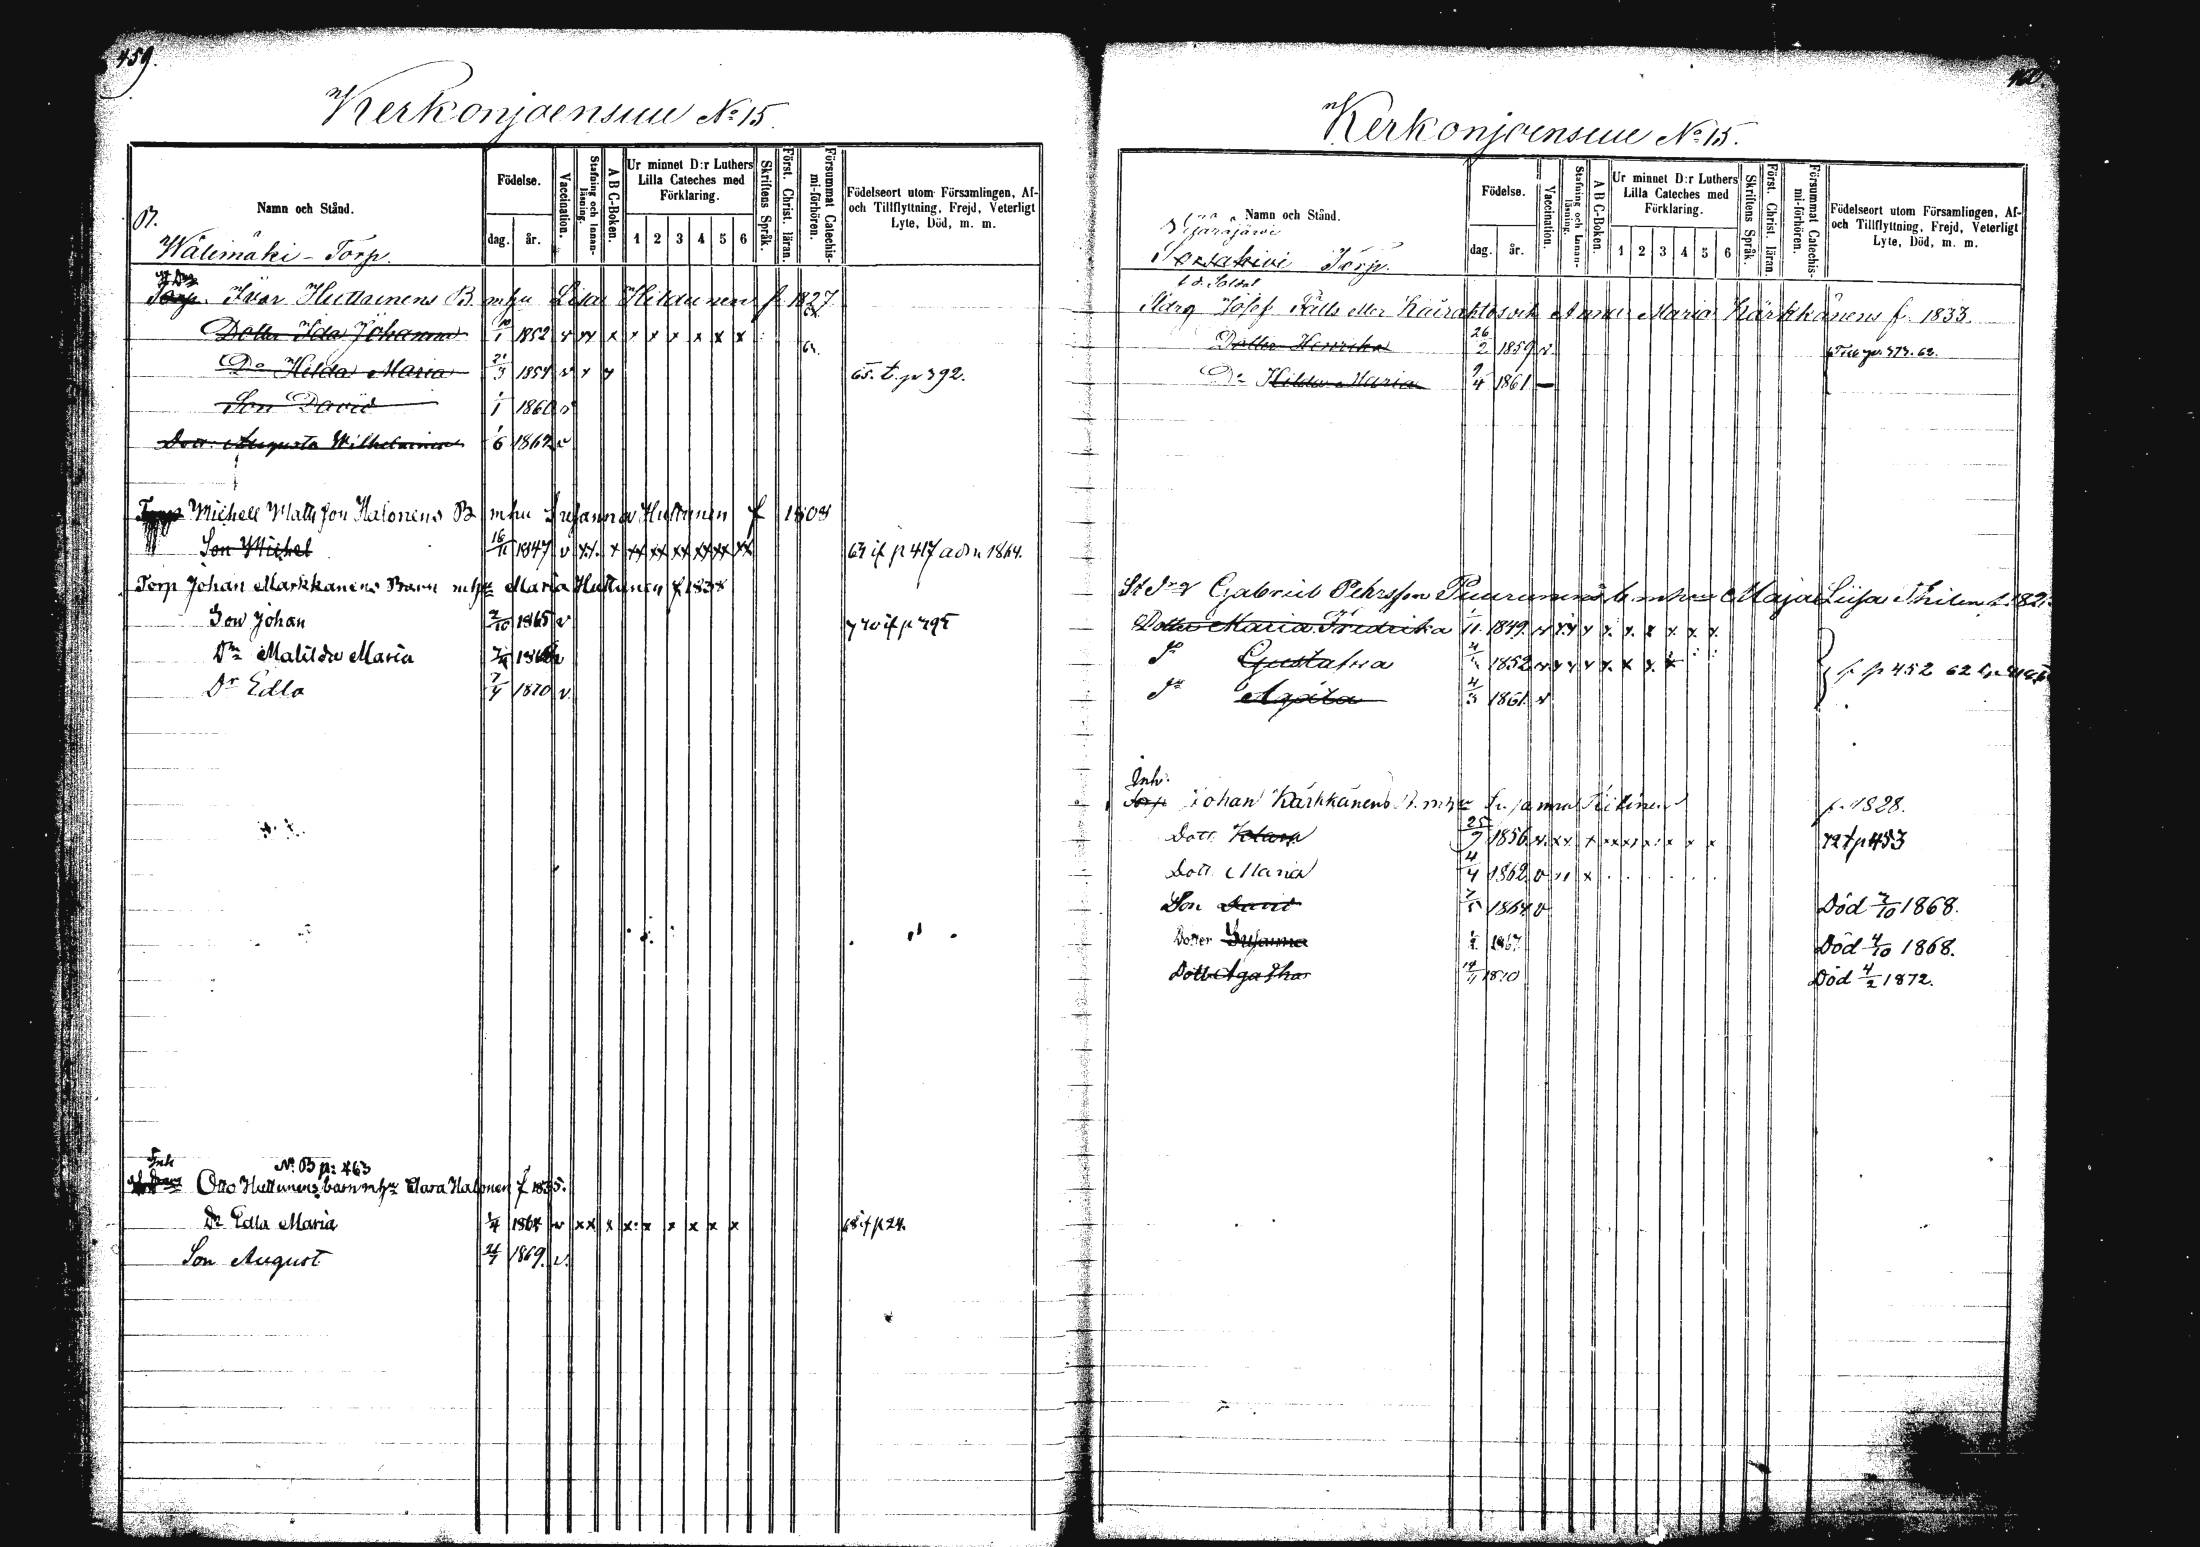 459.
Kerkonjoensuu No 15.
Namn och Stånd.
Födelse.
dag. år.
Vaccination.
Stafning och Innan-läsning.
A B C-Boken.
Ur minnet D:r Luthers Lilla Cateches med Förklaring.
1 2 3 4 5 6
Skriftens Språk.
Först. Christ. läran.
Försummat Catechis-mi-förhören.
Födelseort utom Församlingen, Af- och Tillflyttning, Frejd, Veterligt Lyte, Död, m. m.
Wälimäki - Torp.
Torp. Ivar Huttunens B. m hu Lisa Hildunen f. 1827.
Dotter Ida Johanna 1852 v xx x x x x x x x
Do Hilda Maria 21/3 1857 v 65. t. p 392.
Son David 1/1 1860 v
Dotr. Augusta Wilhelmina 1/6 1862 v
Torp Michell Matts son Halonens B m hu Susanna Huttunen f 1808
Son Michel 16/11 1847 v xx. x xx xx xx xx xx xx
Torp Johan Markkanens Barn m hu Maria Huttunen f 183
Son Johan 2/10 1865 v
Dr Matilda Maria
Dr Edla 7/4 1870 v.
Inh
No B p: 463
Otto Huttunens barn m hu Clara Halonen f 1835.
Dr Edla Maria 1/4 1864 v xx x x: x x x x x 68 if p 24.
Son August 1869. v.
Kerkonjoensuu No 15.
Namn och Stånd.
Födelse.
dag. år.
Vaccination.
Stafning och Innan-läsning.
A B C-Boken.
Ur minnet D:r Luthers Lilla Cateches med Förklaring.
1 2 3 4 5 6
Skriftens Språk.
Först. Christ. läran.
Försummat Catechis-mi-förhören.
Födelseort utom Församlingen, Af- och Tillflyttning, Frejd, Veterligt Lyte, Död, m. m.
Torp.
f. d. Soldat
Josef Fälts eller Anna Maria Kärkkänens f. 1833.
Dotter Henrika 26/2 1859 v.
Do Hilda Maria 9/4 1861 —
Gabriel Pehrsson Puurunens b. m hu Maja Liisa
Dotter Maria Fredrika 1/11 1849.
Gustafva 1852
Agata 4/3 1861 v
f p 452 62
Inh.
Torp Johan Kärkkänens B. m hu Susanna f. 1828.
Dott. Klara 25/9 1856 72 f p 453
Dott. Maria 4/4 1862 v
Son David 1864 v Död 2/10 1868.
Dotter Susanna 1867 Död 4/10 1868.
Dott Agatha 1870 Död 4/2 1872.